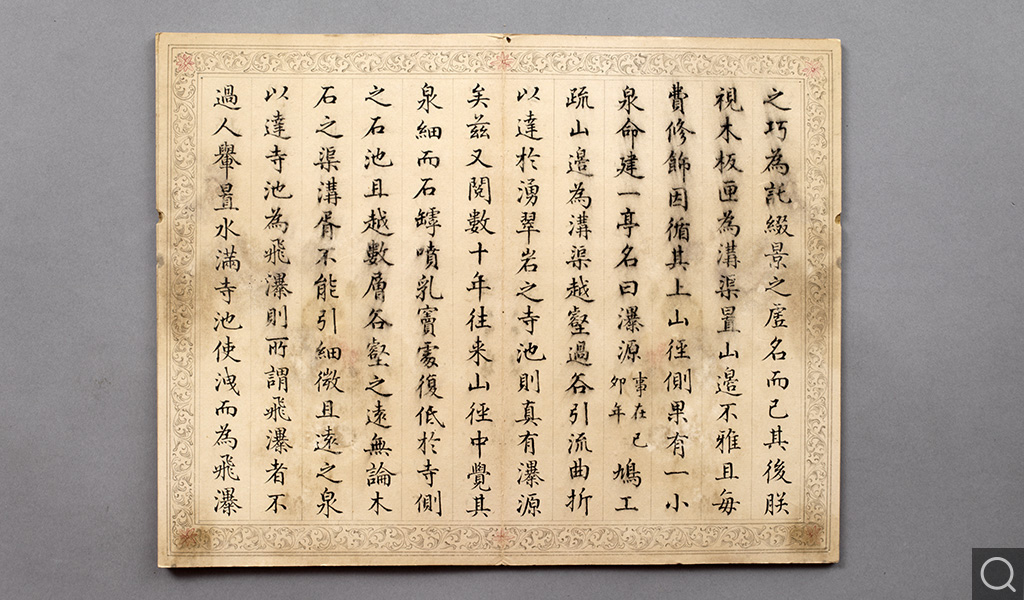 之巧為託綴景之虛名而已其後朕
視木板匣為溝渠置山邊不雅且每
費修飾因循其上山徑側果有一小
泉命建一亭名曰瀑源事在己卯年鳩工
疏山邊為溝渠越壑過谷引流曲折
以達於湧翠岩之寺池則真有瀑源
矣茲又閱數十年往来山徑中覺其
泉細而石罅噴乳竇處復低於寺側
之石池且越數層谷壑之遠無論木
石之渠溝胥不能引細微且遠之泉
以達寺池為飛瀑則所謂飛瀑者不
過人轝置水滿寺池使洩而為飛瀑